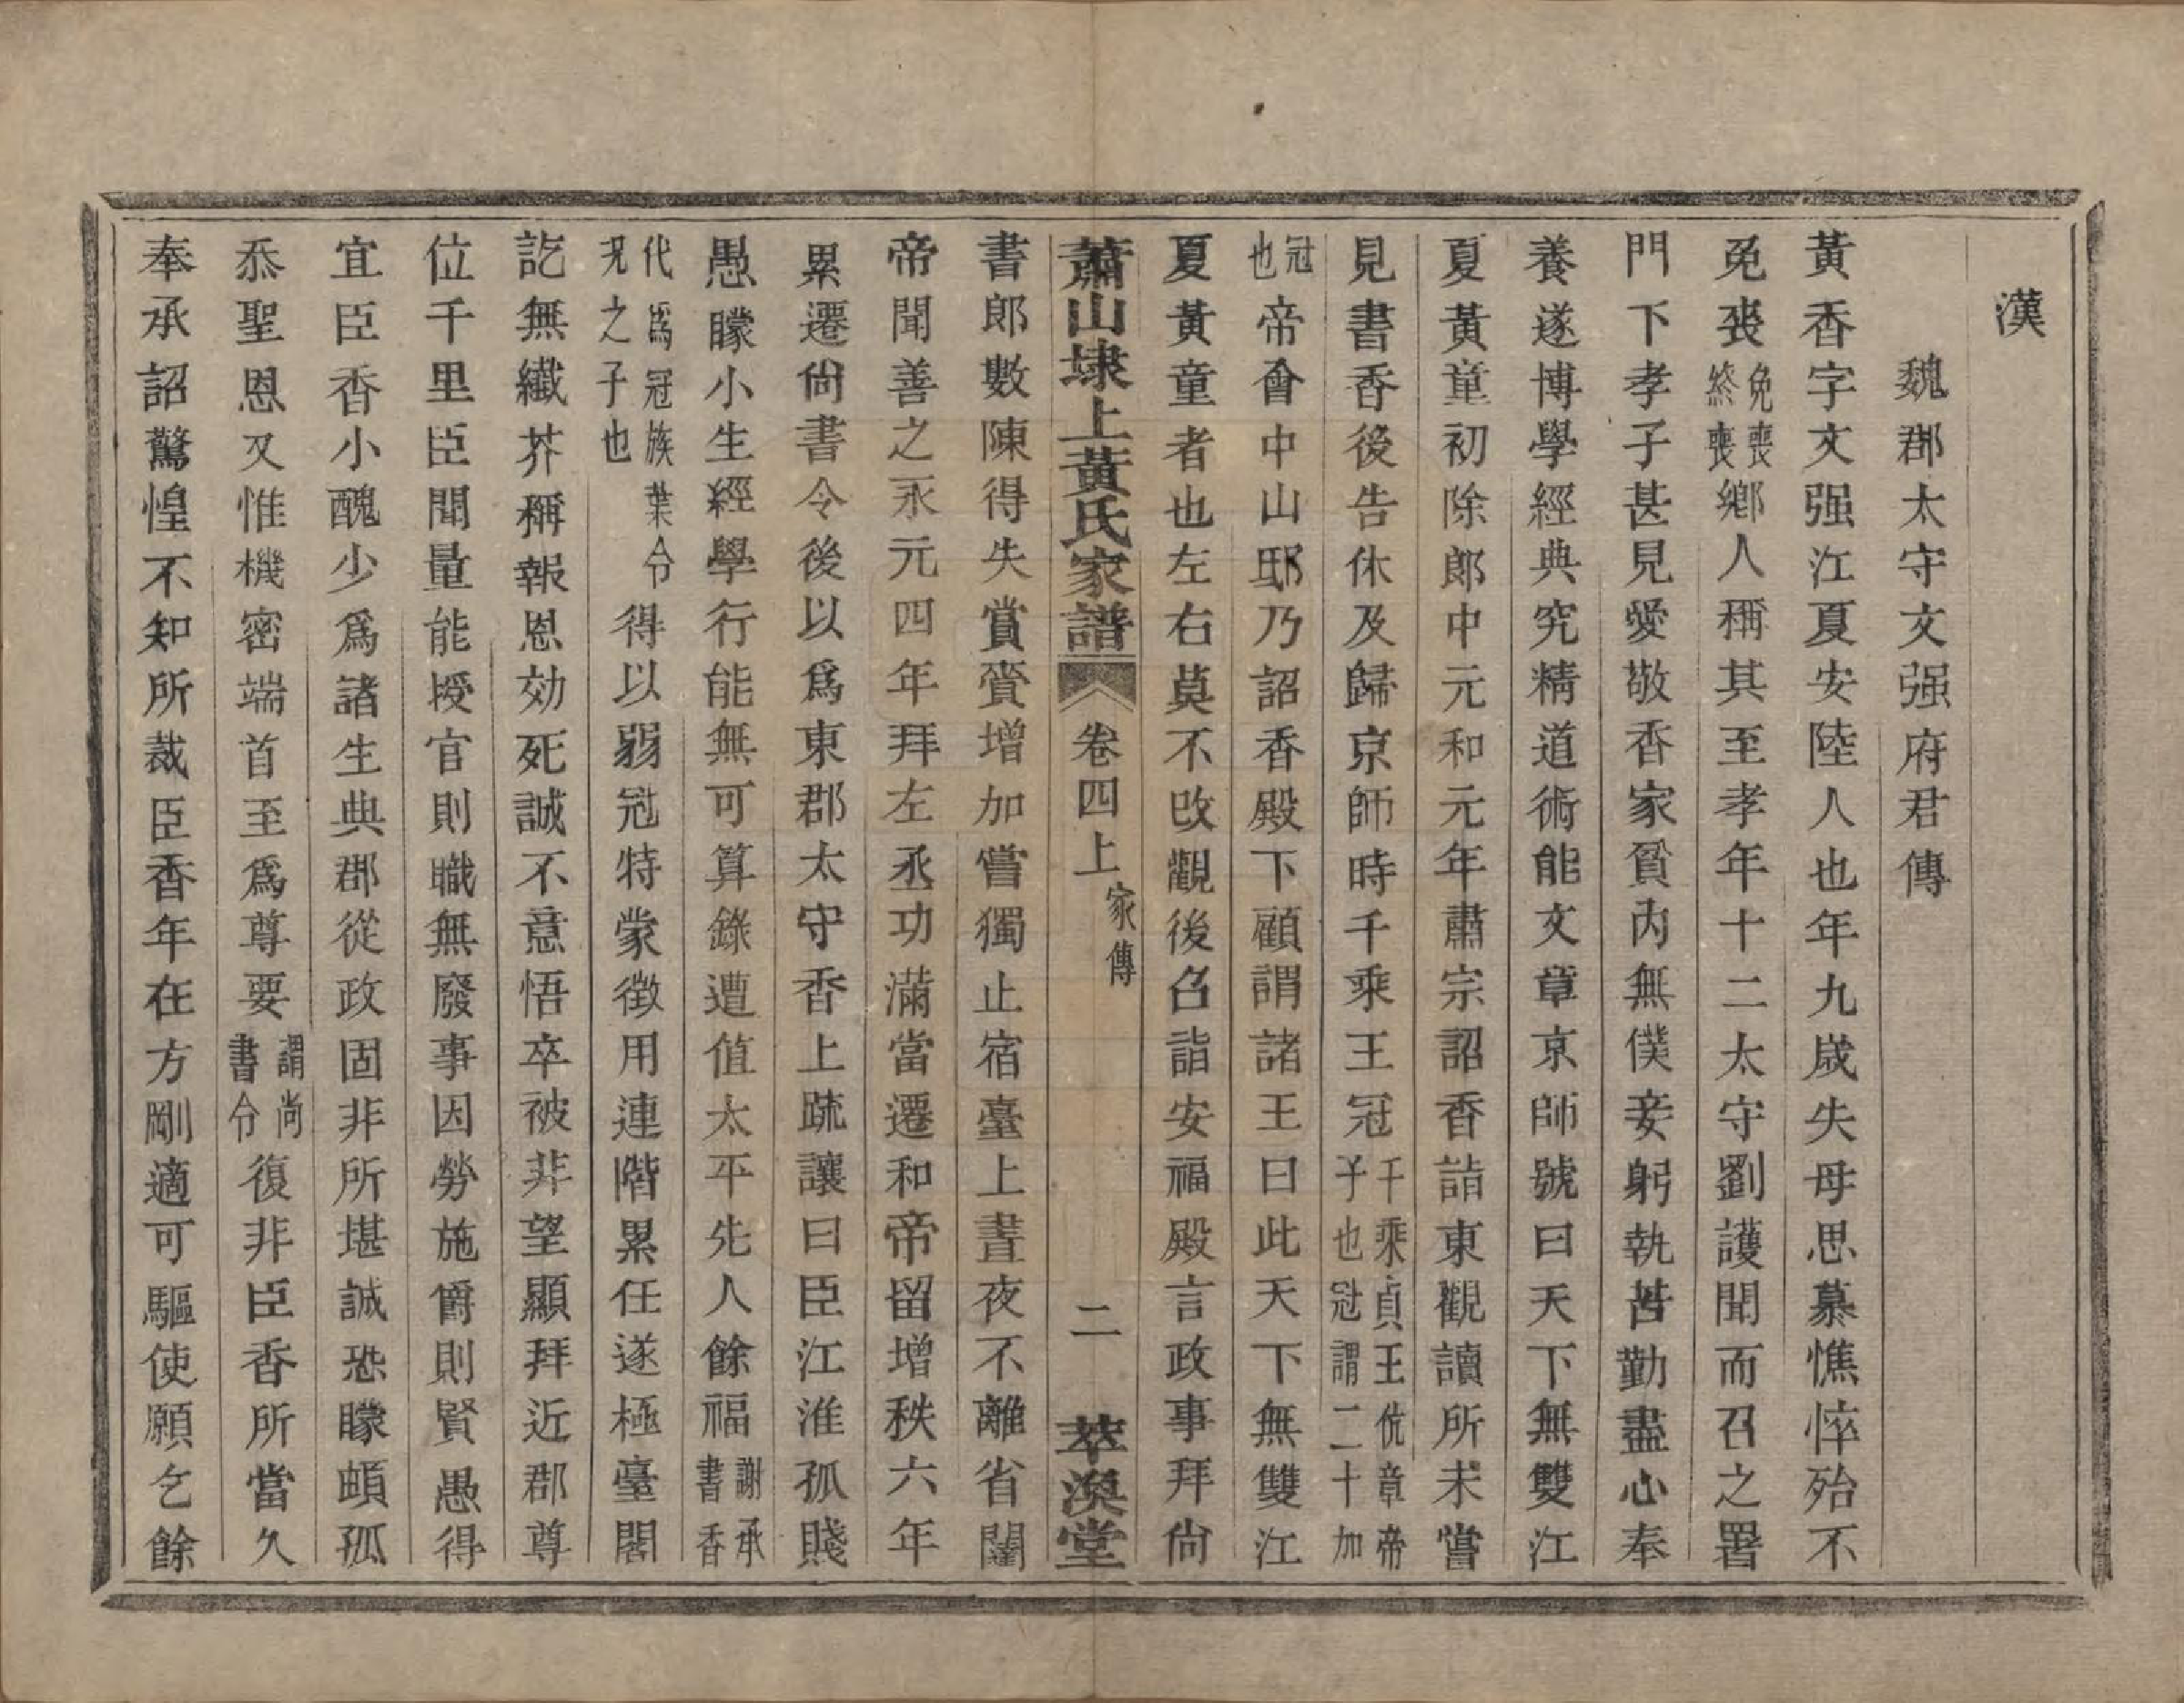 漢
魏郡太守文强府君傳
黃香字文强江夏安陸人也年九歲失母思慕憔悴殆不
免喪免喪終喪鄉人稱其至孝年十二太守劉護聞而召之署
門下孝子甚見愛敬香家貧內無僕妾躬執苦勤盡心奉
養遂博學經典究精道術能文章京師號曰天下無雙江
夏黃童初除郎中元和元年肅宗詔香詣東觀讀所未嘗
見書香後告休及歸京師時千乘王冠千乘貞王伉章帝子也冠謂二十加
冠也帝會中山邸乃詔香殿下顧謂諸王曰此天下無雙江
夏黃童者也左右莫不改觀後召詣安福殿言政事拜尙
蕭山埭上黃氏家譜 卷四上 家傳 二 萃渙堂
書郎數陳得失賞賚增加嘗獨止宿臺上晝夜不離省闥
帝聞善之永元四年拜左丞功滿當遷和帝留增秩六年
累遷尙書令後以爲東郡太守香上疏讓曰臣江淮孤賤
愚矇小生經學行能無可算錄遭值太平先人餘福謝承書香
代爲冠族葉令況之子也得以弱冠特蒙徵用連階累任遂極臺閣
訖無纖芥稱報恩効死誠不意悟卒被非望顯拜近郡尊
位千里臣聞量能授官則職無廢事因勞施爵則賢愚得
宜臣香小醜少爲諸生典郡從政固非所堪誠恐矇頓孤
忝聖恩又惟機密端首至爲尊要謂尚書令復非臣香所當久
奉承詔驚惶不知所裁臣香年在方剛適可驅使願乞餘